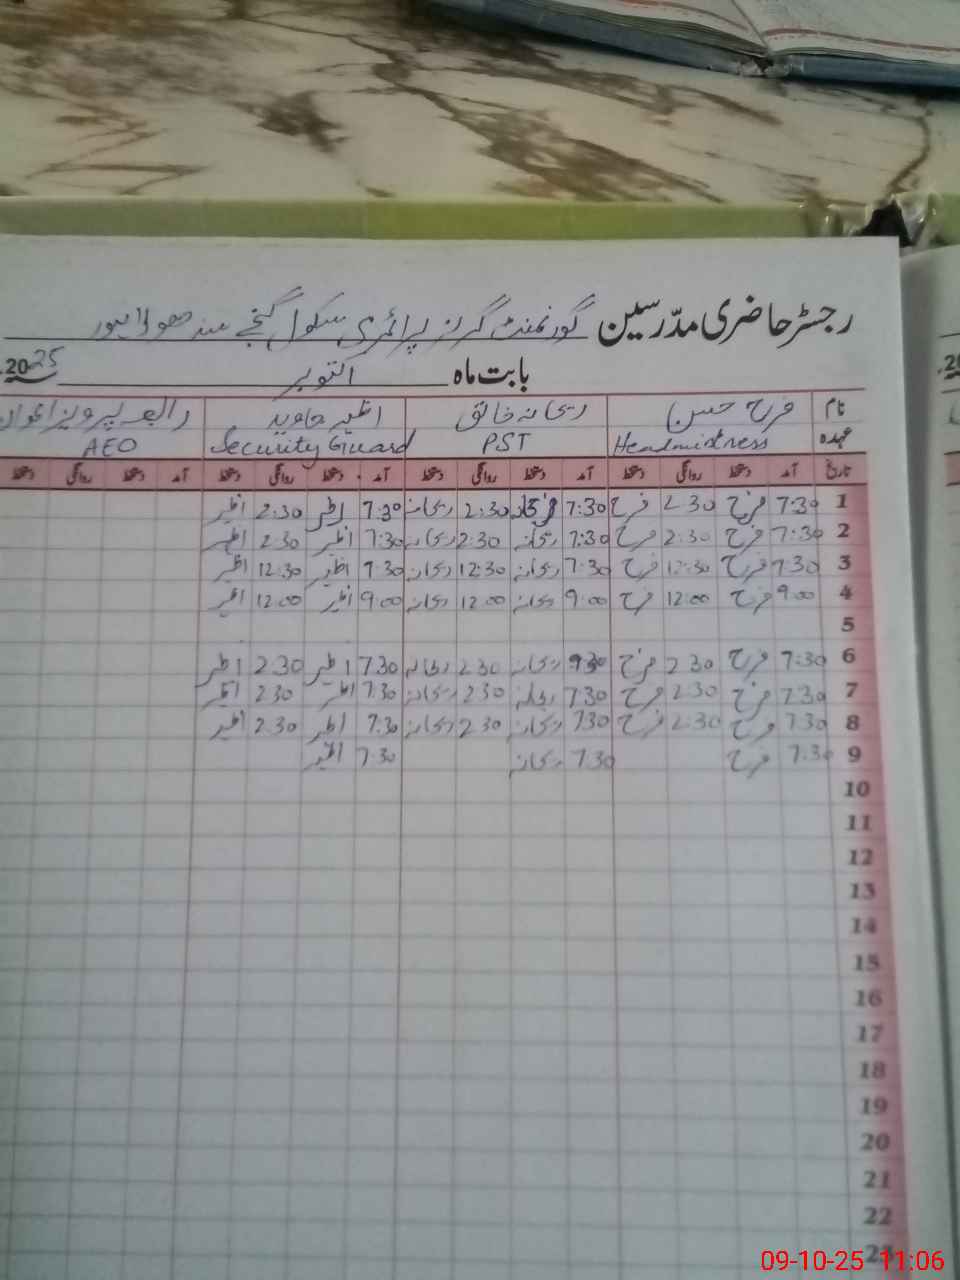 رجسٹر حاضری مدرسین گورنمنٹ گرلز پرائمری سکول گنجے سندھو لاہور
بابت ماہ اکتوبر 2025
نام فرح حسن ریحانہ خالق اظہر جاوید رابعہ پرویز اعوان
عہدہ Headmistress PST Security Guard AEO
تاریخ آمد دستخط روانگی دستخط آمد دستخط روانگی دستخط آمد دستخط روانگی دستخط آمد دستخط روانگی دستخط
1 7:30 فرح 2:30 فرح 7:30 2:30 ریحانہ 7:30 اظہر 2:30 اظہر
2 7:30 فرح 2:30 فرح 7:30 ریحانہ 2:30 ریحانہ 7:30 اظہر 2:30 اظہر
3 7:30 فرح 12:30 فرح 7:30 ریحانہ 12:30 ریحانہ 7:30 اظہر 12:30 اظہر
4 9:00 فرح 12:00 فرح 9:00 ریحانہ 12:00 ریحانہ 9:00 اظہر 12:00 اظہر
5
6 7:30 فرح 2:30 فرح ریحانہ 2:30 ریحانہ 7:30 اظہر 2:30 اظہر
7 7:30 فرح 2:30 فرح 7:30 ریحانہ 2:30 ریحانہ 7:30 اظہر 2:30 اظہر
8 7:30 فرح 2:30 فرح 7:30 ریحانہ 2:30 ریحانہ 7:30 اظہر 2:30 اظہر
9 7:30 فرح 7:30 ریحانہ 7:30 اظہر
10
11
12
13
14
15
16
17
18
19
20
21
22
09-10-25 11:06